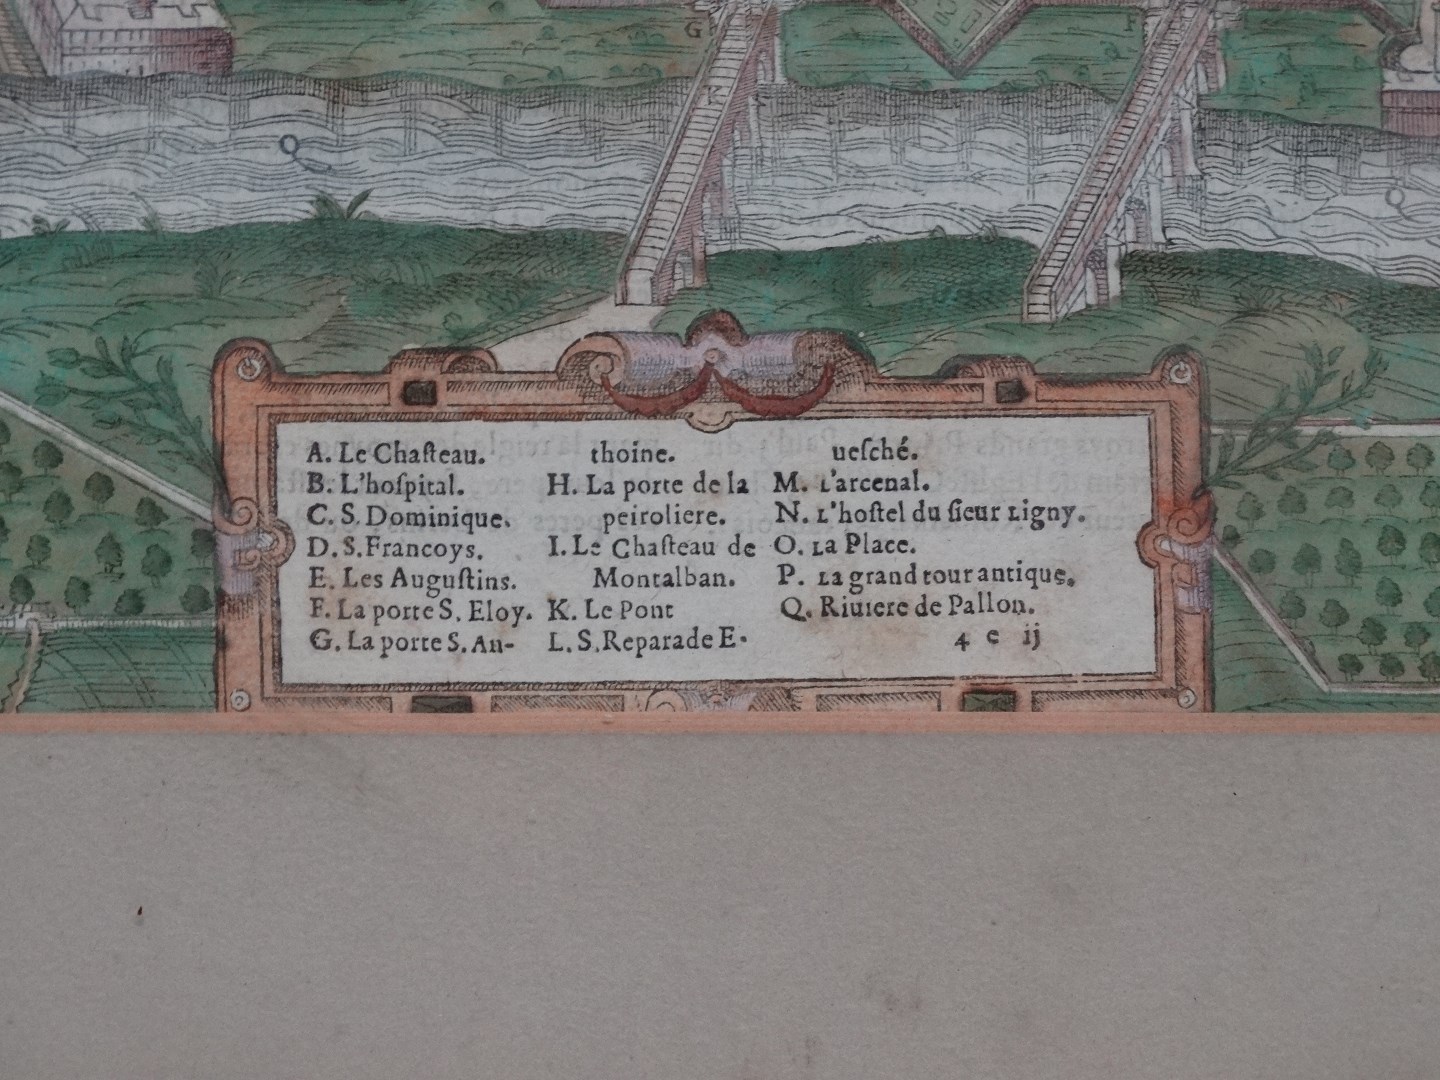 G
F
A. Le Chaſteau.
B. L'hoſpital.
C. S. Dominique.
D. S. Francoys.
E. Les Auguſtins.
F. La porte S. Eloy.
G. La porte S. An-
thoine.
H. La porte de la
peiroliere.
I. Le Chaſteau de
Montalban.
K. Le Pont
L. S. Reparade E.
ueſché.
M. L'arcenal.
N. L'hoſtel du ſieur Ligny.
O. La Place.
P. La grand tour antique.
Q. Riuiere de Pallon.
4 e ij